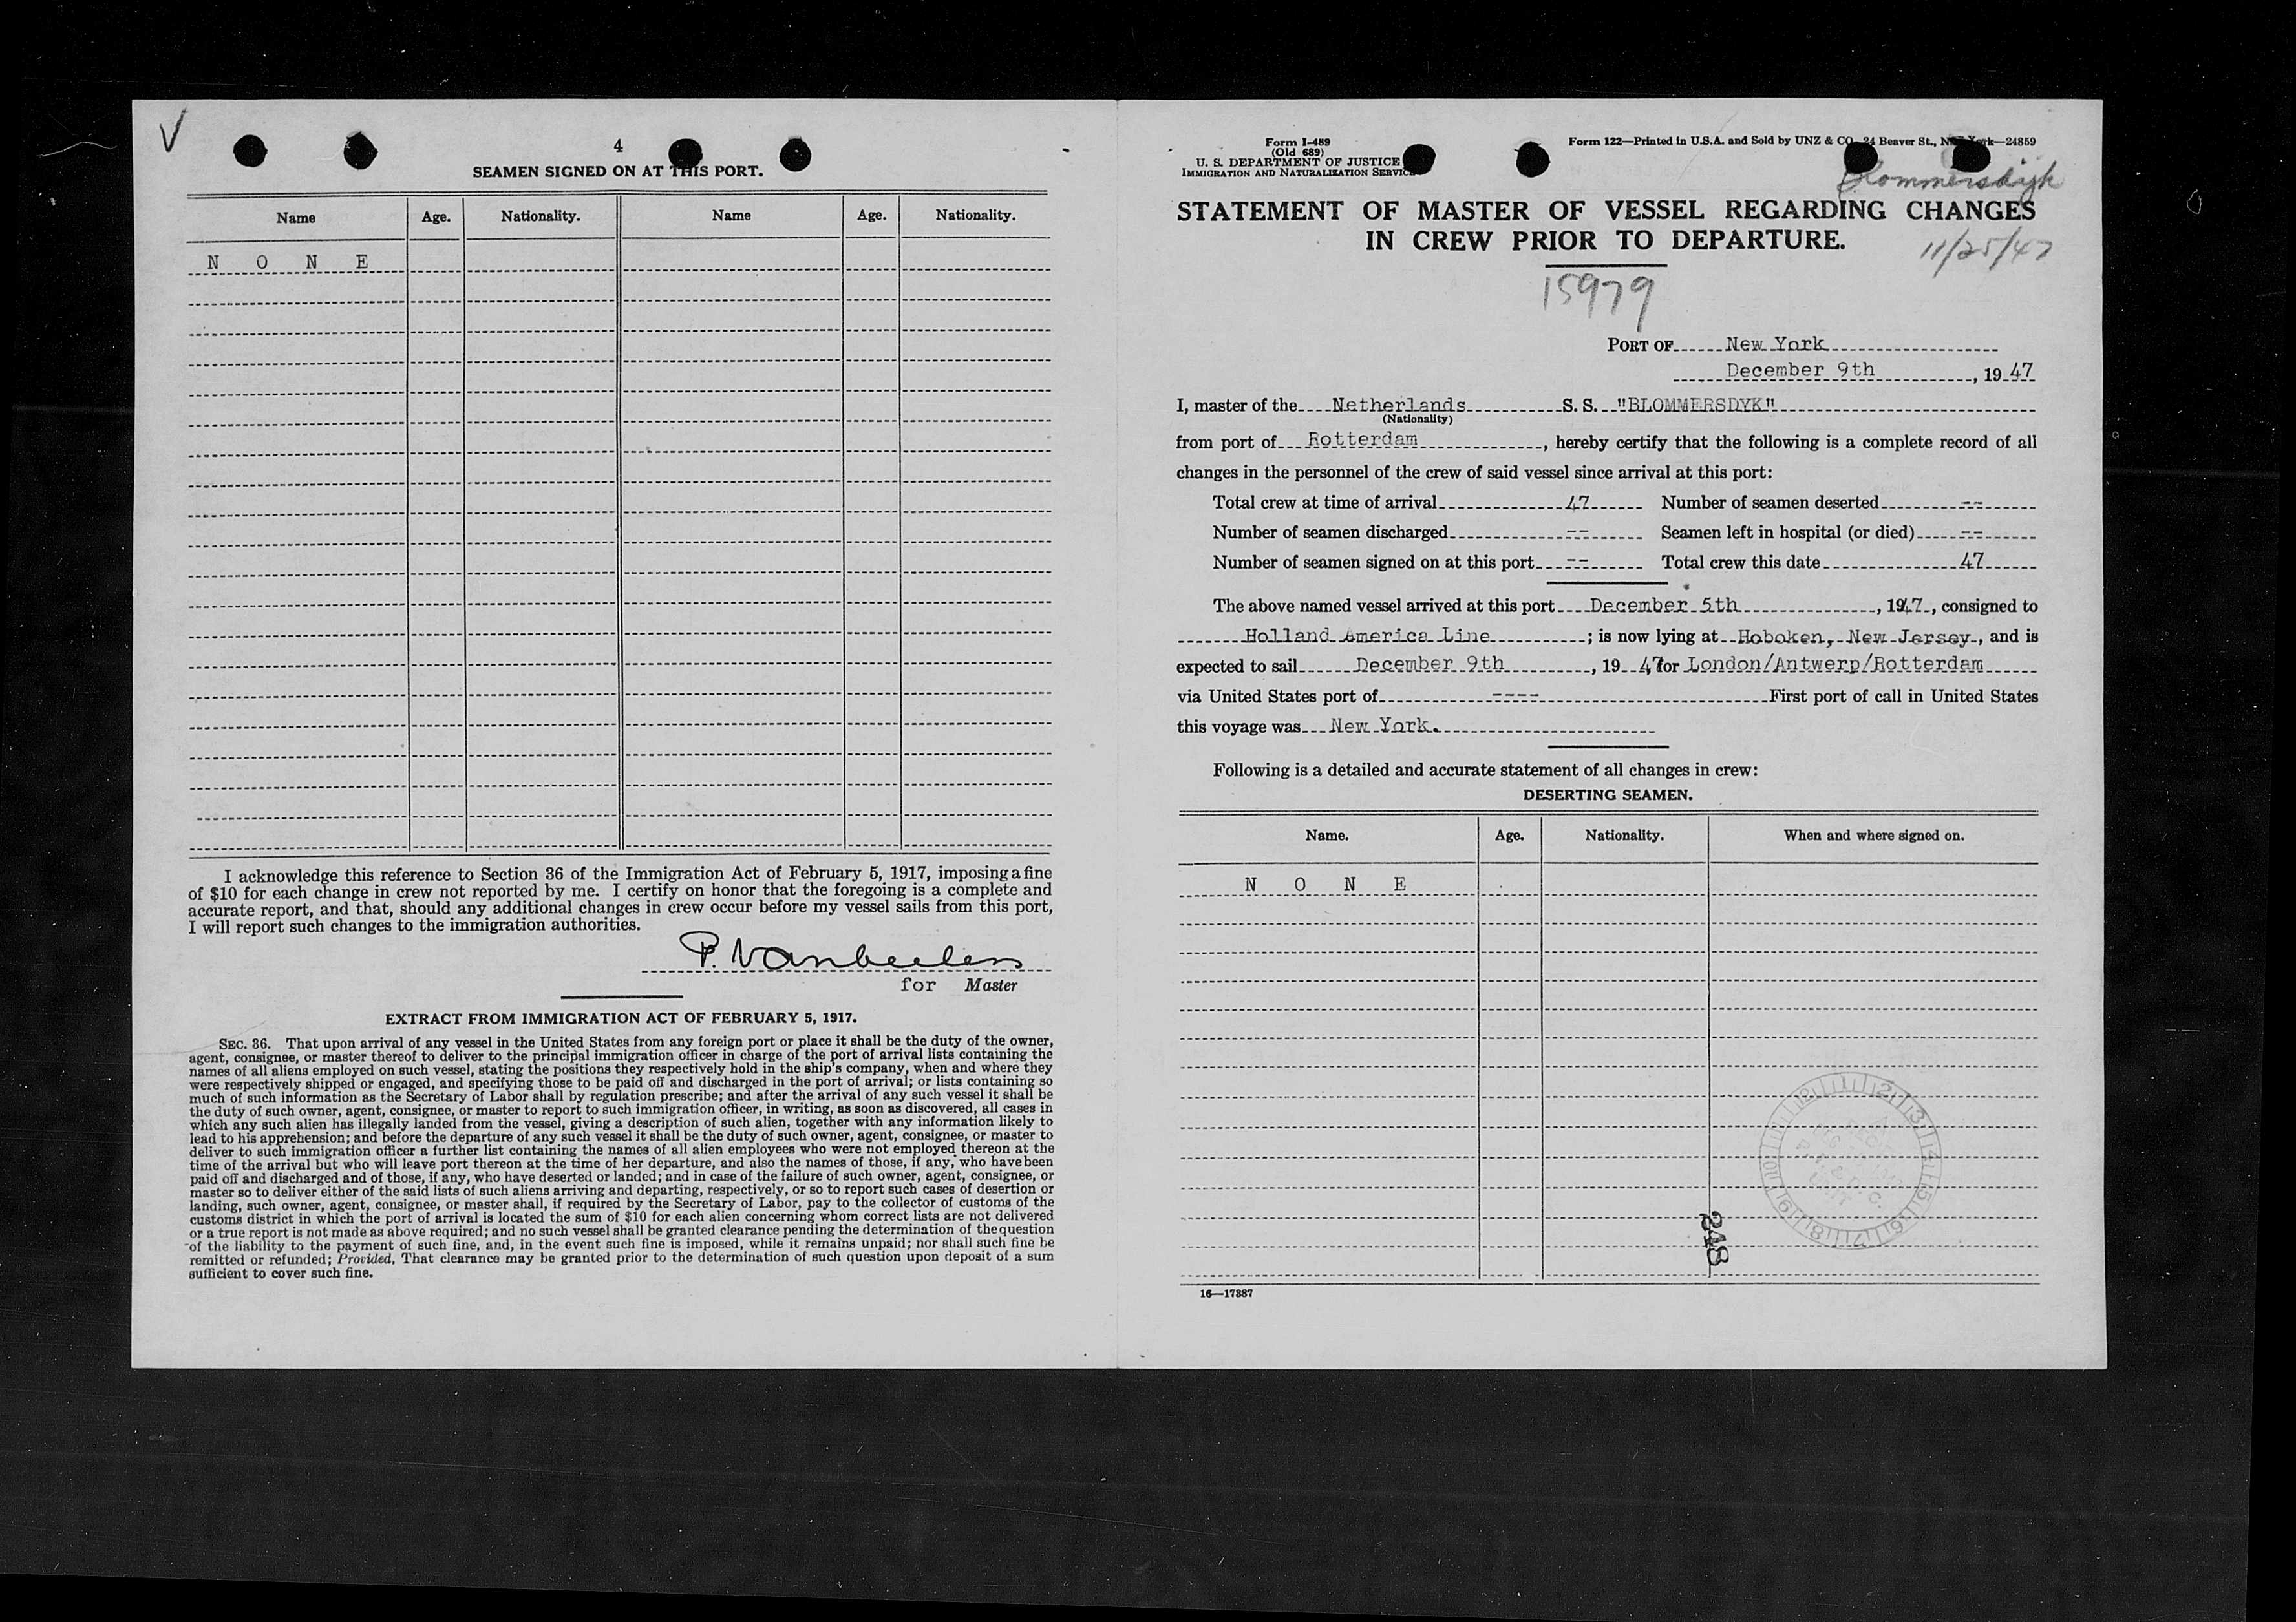 4
SEAMEN SIGNED ON AT THIS PORT.
Name Age. Nationality. Name Age. Nationality.
N O N E
I acknowledge this reference to Section 36 of the Immigration Act of February 5, 1917, imposing a fine
of $10 for each change in crew not reported by me. I certify on honor that the foregoing is a complete and
accurate report, and that, should any additional changes in crew occur before my vessel sails from this port,
I will report such changes to the immigration authorities.
P. Vanbeelen
for Master
EXTRACT FROM IMMIGRATION ACT OF FEBRUARY 5, 1917.
SEC. 36. That upon arrival of any vessel in the United States from any foreign port or place it shall be the duty of the owner,
agent, consignee, or master thereof to deliver to the principal immigration officer in charge of the port of arrival lists containing the
names of all aliens employed on such vessel, stating the positions they respectively hold in the ship's company, when and where they
were respectively shipped or engaged, and specifying those to be paid off and discharged in the port of arrival; or lists containing so
much of such information as the Secretary of Labor shall by regulation prescribe; and after the arrival of any such vessel it shall be
the duty of such owner, agent, consignee, or master to report to such immigration officer, in writing, as soon as discovered, all cases in
which any such alien has illegally landed from the vessel, giving a description of such alien, together with any information likely to
lead to his apprehension; and before the departure of any such vessel it shall be the duty of such owner, agent, consignee, or master to
deliver to such immigration officer a further list containing the names of all alien employees who were not employed thereon at the
time of the arrival but who will leave port thereon at the time of her departure, and also the names of those, if any, who have been
paid off and discharged and of those, if any, who have deserted or landed; and in case of the failure of such owner, agent, consignee, or
master so to deliver either of the said lists of such aliens arriving and departing, respectively, or so to report such cases of desertion or
landing, such owner, agent, consignee, or master shall, if required by the Secretary of Labor, pay to the collector of customs of the
customs district in which the port of arrival is located the sum of $10 for each alien concerning whom correct lists are not delivered
or a true report is not made as above required; and no such vessel shall be granted clearance pending the determination of the question
of the liability to the payment of such fine, and, in the event such fine is imposed, while it remains unpaid; nor shall such fine be
remitted or refunded; Provided, That clearance may be granted prior to the determination of such question upon deposit of a sum
sufficient to cover such fine.
Form I-489
(Old 689)
U. S. DEPARTMENT OF JUSTICE
IMMIGRATION AND NATURALIZATION SERVICE
Form 122—Printed in U.S.A. and Sold by UNZ & CO. 24 Beaver St., New York—24859
Blommersdijk
STATEMENT OF MASTER OF VESSEL REGARDING CHANGES
IN CREW PRIOR TO DEPARTURE.
11/25/47
15979
PORT OF New York
December 9th, 1947
I, master of the Netherlands S. S. "BLOMMERSDYK"
(Nationality)
from port of Rotterdam, hereby certify that the following is a complete record of all
changes in the personnel of the crew of said vessel since arrival at this port:
Total crew at time of arrival 47 Number of seamen deserted --
Number of seamen discharged -- Seamen left in hospital (or died) --
Number of seamen signed on at this port -- Total crew this date 47
The above named vessel arrived at this port December 5th, 1947, consigned to
Holland America Line; is now lying at Hoboken, New Jersey, and is
expected to sail December 9th, 1947 for London/Antwerp/Rotterdam
via United States port of ---- First port of call in United States
this voyage was New York.
Following is a detailed and accurate statement of all changes in crew:
DESERTING SEAMEN.
Name. Age. Nationality. When and where signed on.
N O N E
248
16—17887